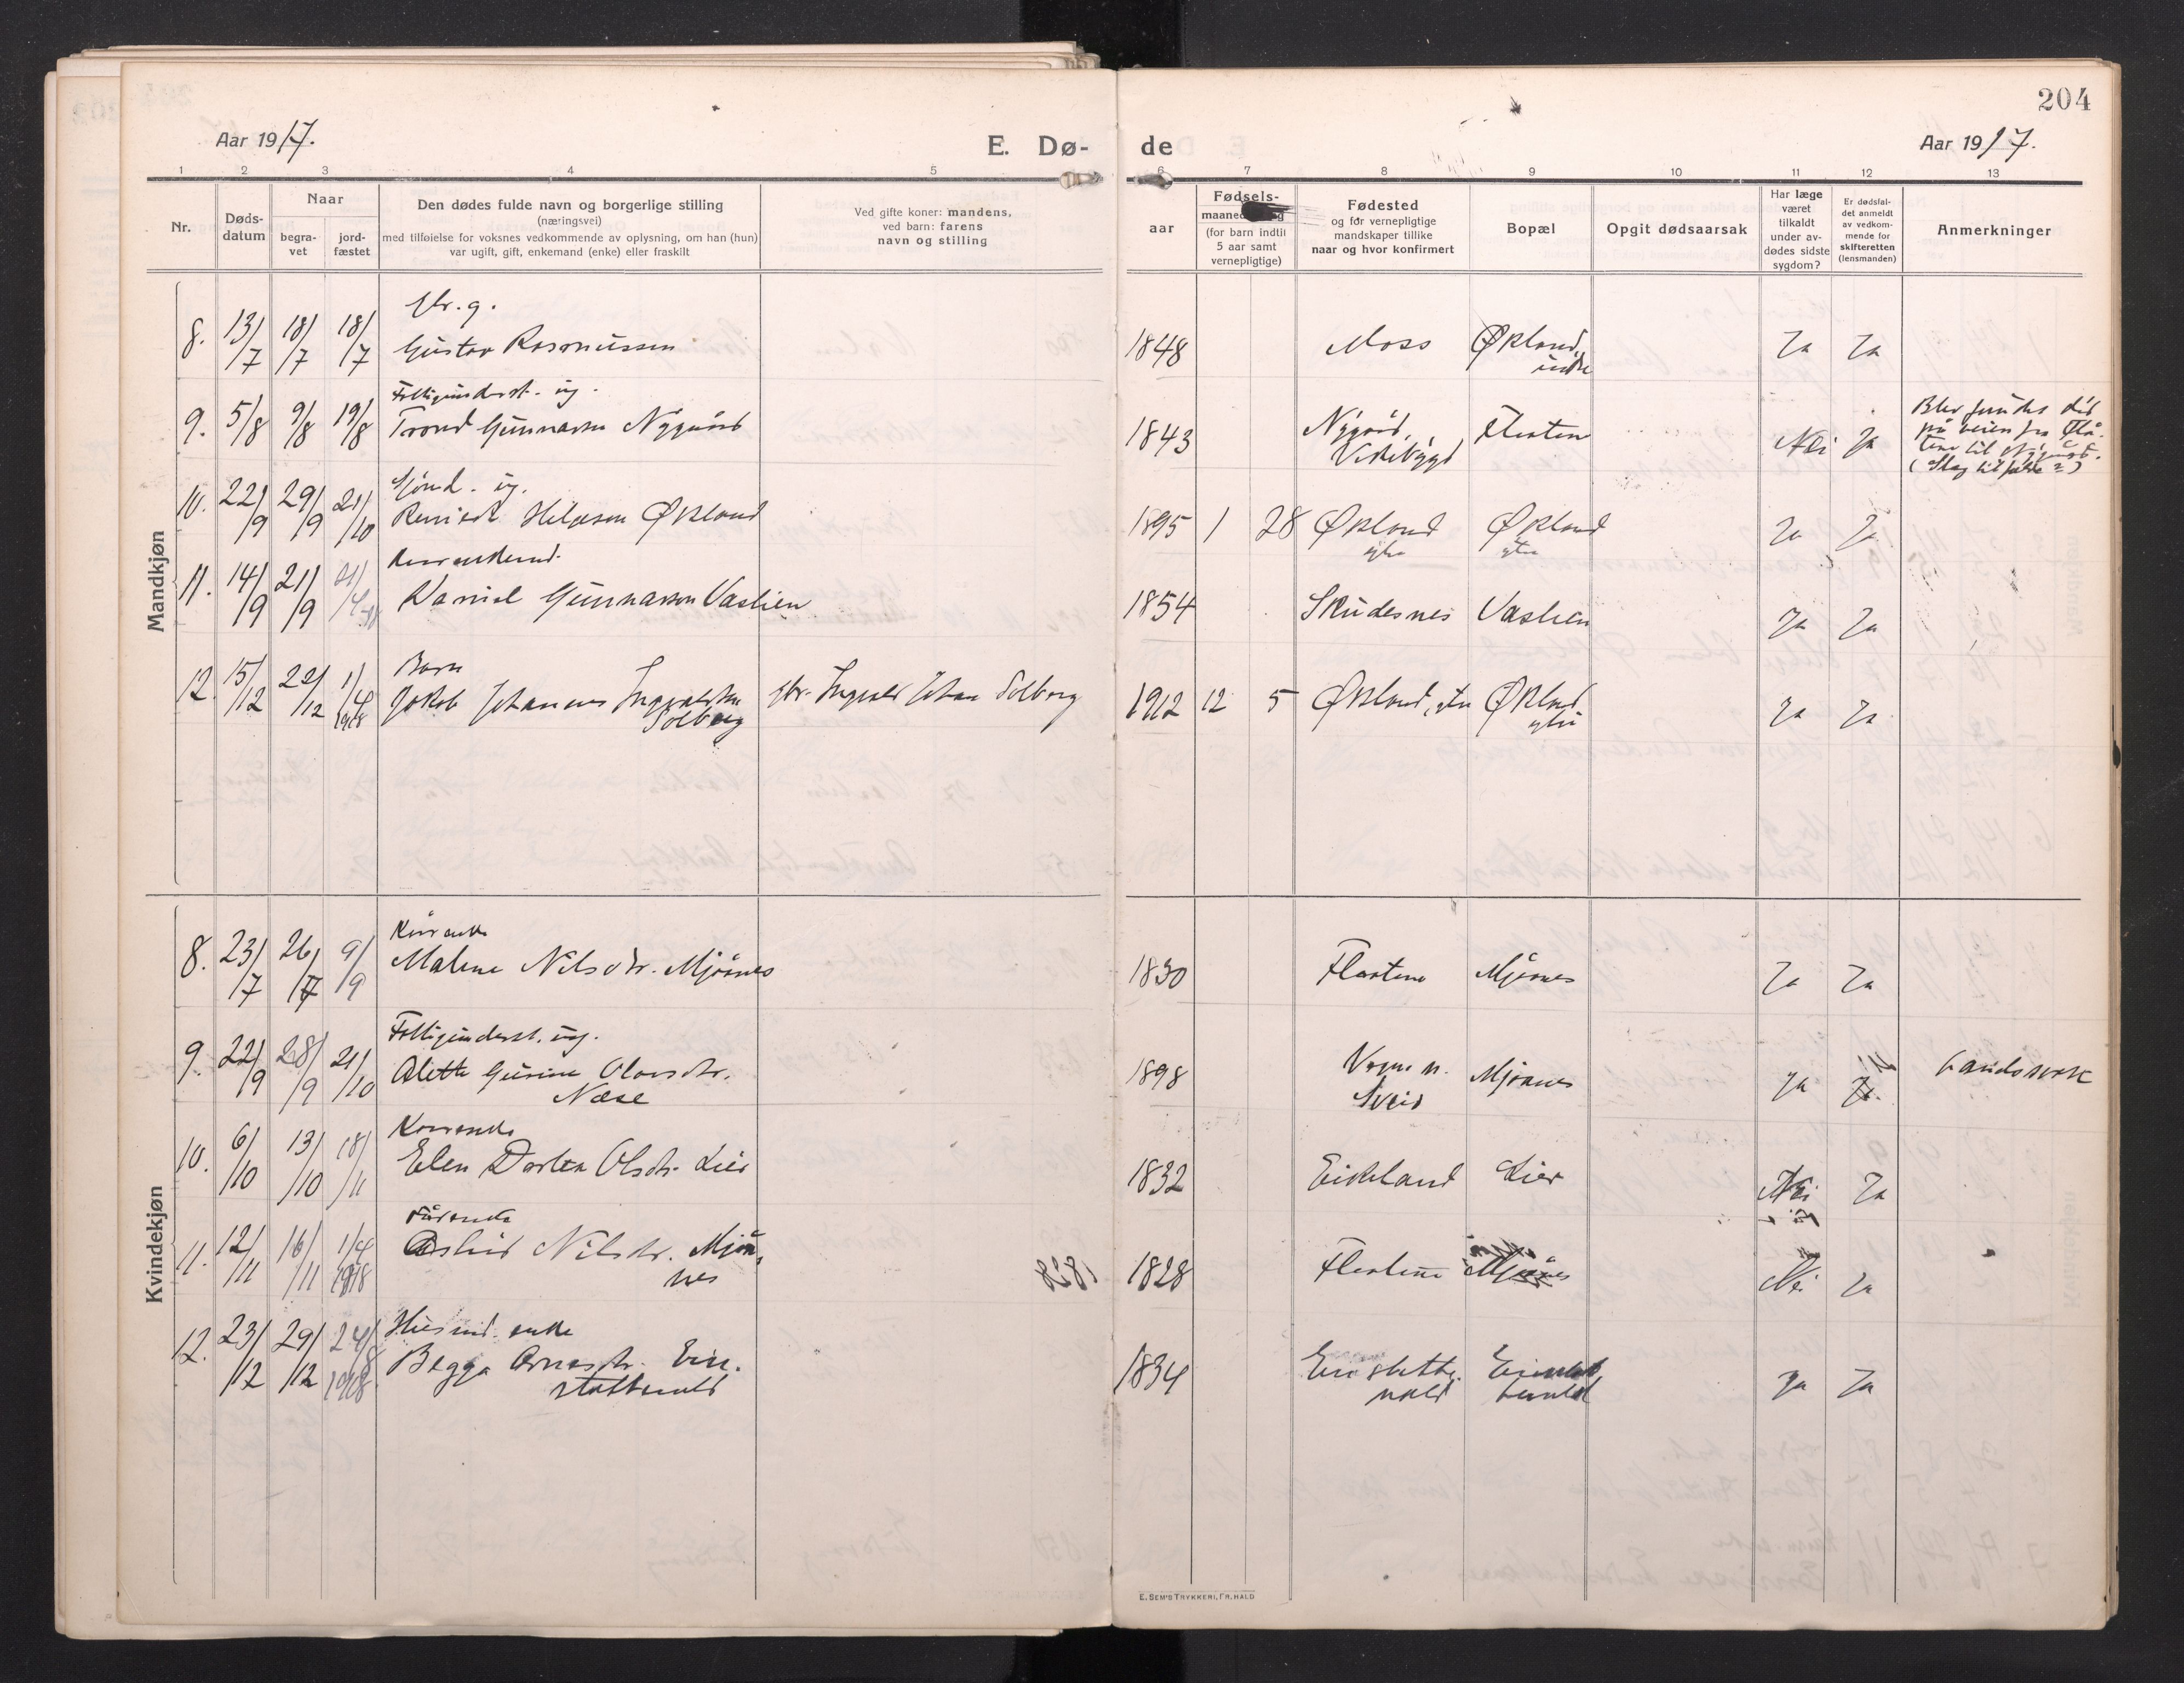 204
Aar 1917. E. Dø- de Aar 1917.
1 2 3 4 5 6 7 8 9 10 11 12 13
Nr.
Døds-
datum
Naar
begra-
vet
jord-
fæstet
Den dødes fulde navn og borgerlige stilling
(næringsvei)
med tilføielse for voksnes vedkommende av oplysning, om han (hun)
var ugift, gift, enkemand (enke) eller fraskilt
Ved gifte koner: mandens,
ved barn: farens
navn og stilling
aar
Fødsels-
(for barn indtil
5 aar samt
vernepligtige)
Fødested
og for vernepligtige
mandskaper tillike
naar og hvor konfirmert
Bopæl
Opgit dødsaarsak
Har læge
været
tilkaldt
under av-
dødes sidste
sygdom?
Er dødsfal-
det anmeldt
av vedkom-
mende for
skifteretten
(lensmanden)
Anmerkninger
Mandkjøn
gbr. g.
8. 13/7 18/7 18/7 Gustav Rasmussen 1848 Moss Økland, indre Ja Ja
Fattigunderst. ug.
9. 5/8 9/8 19/8 Trond Gunnarsen Nygård 1843 Nygård, Vikebygd Flatene Nei Ja
Blev funden død
på veien fra Flå-
tene til Nygård.
(Slag tilfelde?)
ug.
10. 22/9 29/9 21/10 Helgesen Økland 1895 1 28 Økland ytre Økland ytre Ja Ja
11. 14/9 21/9 21/4 18 Daniel Gunnarsen Vaslien 1854 Skudesnes Vaslien Ja Ja
Barn
12. 15/12 22/12 1/4 1918 Jakob Johannes Ingvaldsen Solberg gbr. Ingvald Johan Solberg 1912 12 5 Økland, ytre Økland ytre Ja Ja
Kvindekjøn
Kårenke
8. 23/7 26/7 9/9 Malene Nilsdtr. Mjånes 1830 Flatene Mjånes Ja Ja
Fattigunderst. ug.
9. 22/9 28/9 21/10 Alette Gurine Olavsdtr. 1898 Mjånes Ja
Næse Sveio
Kårenke
10. 6/10 13/10 18/11 Elen Dortea Olsdtr. Lier 1832 Eikeland Lier Nei Ja
Kårenke
11. 12/11 16/11 1/4 1918 Astrid Nilsdtr. Mjå- 1828 Flatene Mjånes Nei Ja
nes
Husmd. enke
12. 23/12 29/12 24/8 1918 Begga Arnesdtr. Ein- 1834 Ja Ja
E. SEM'S TRYKKERI, FR.HALD